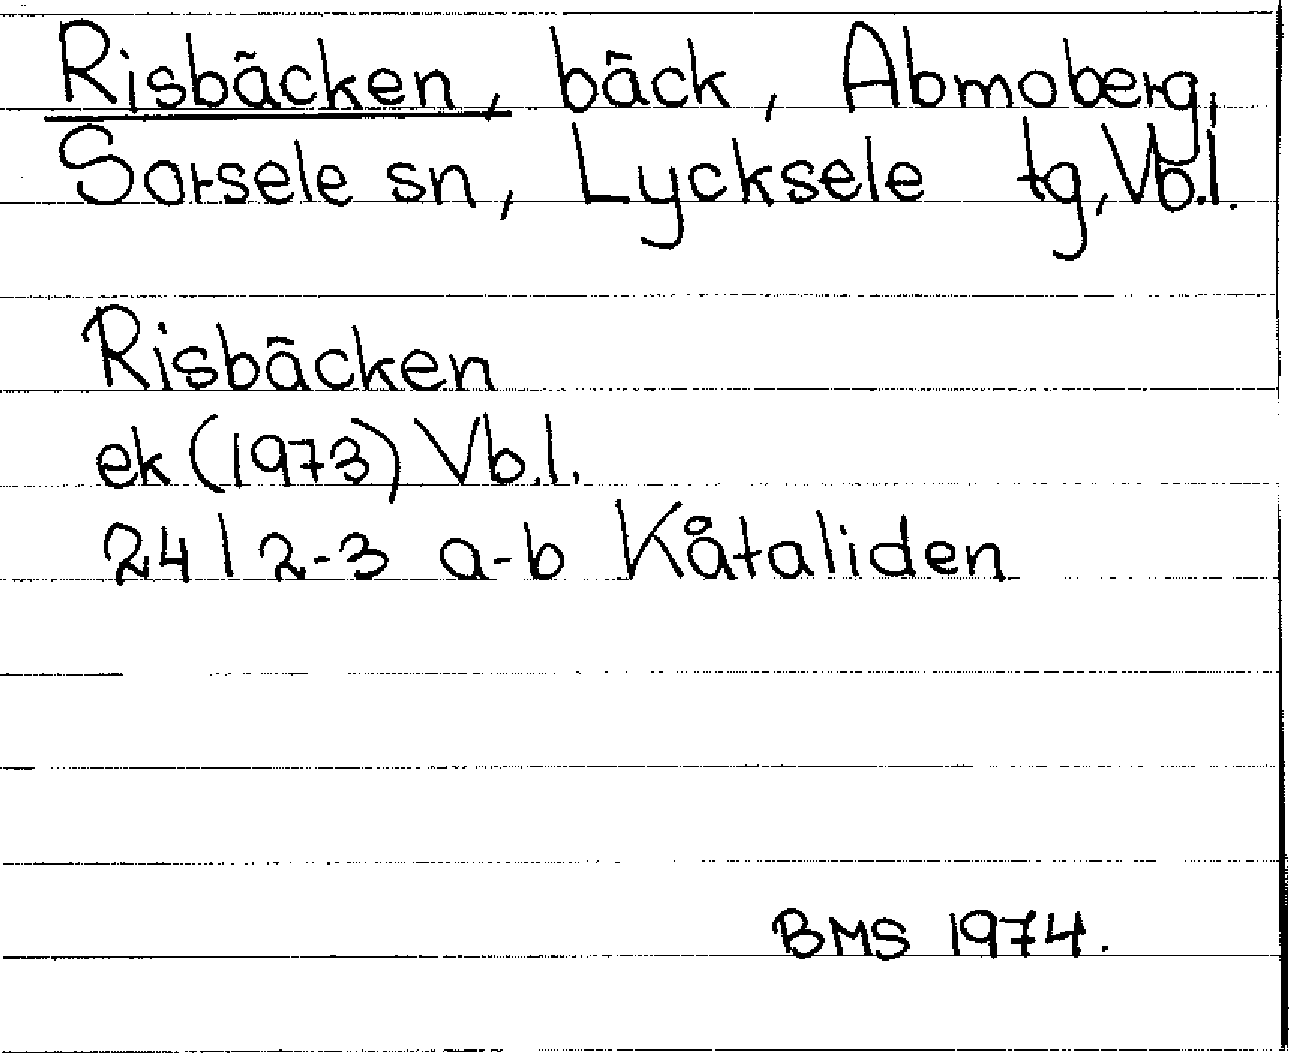 Risbäcken, bäck, Abmoberg,
Sorsele sn, Lycksele tg, Vb.l.
Risbäcken
ek (1973) Vb.l.
24 I 2-3 a-b Kåtaliden
BMS 1974.